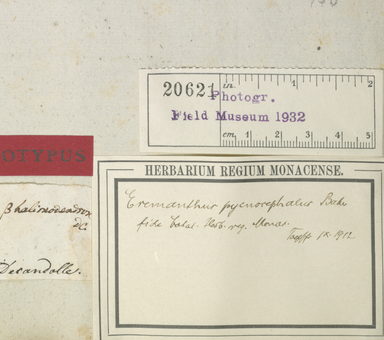 20621
in. 1 2
Photogr.
Field Museum 1932
cm. 1 2 3 4 5
OTYPUS
HERBARIUM REGIUM MONACENSE.
β halimodendron
DC
Decandolle.
Eremanthus pycnocephalus Bake
fide Catal. Herb. reg. Monac.
IX. 1912